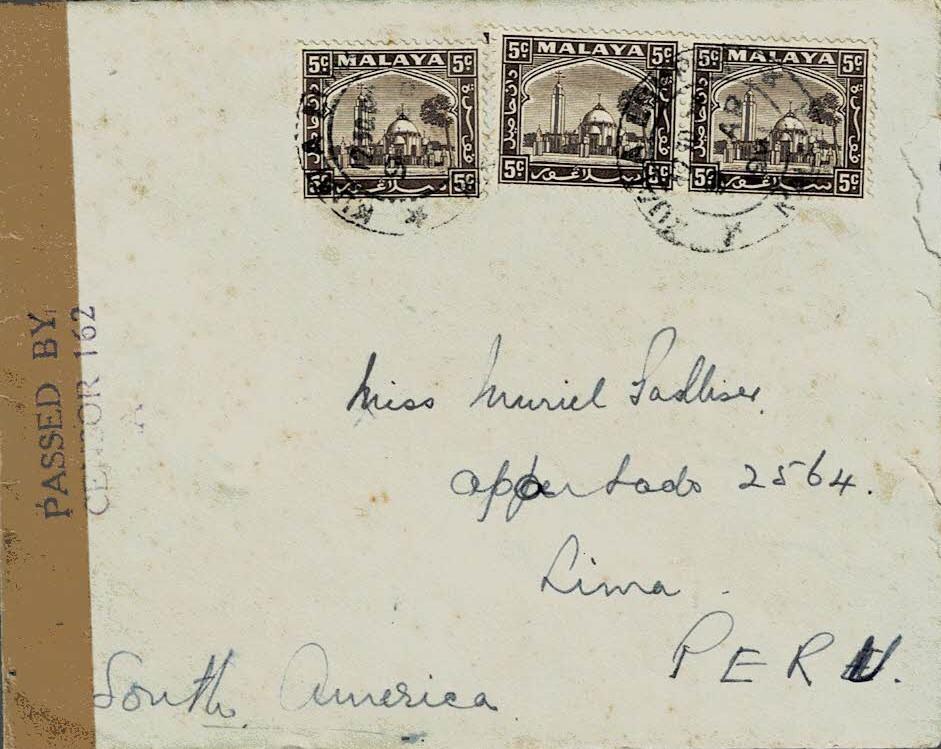 5c MALAYA 5c
5c سلاغور 5c
5c MALAYA 5c
5c سلاغور 5c
5c MALAYA 5c
5c سلاغور 5c
PASSED BY
CENSOR 162
Miss Muriel
Appartado 2564.
Lima.
PERU.
South America